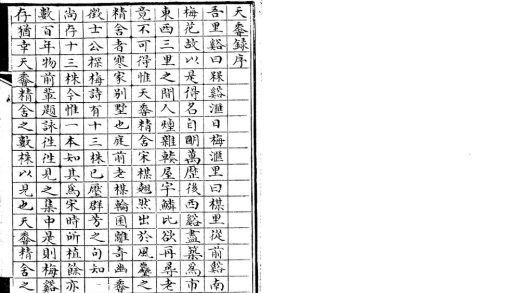 天香錄序
吾里谿曰楳谿滙曰梅滙里曰楳里從前谿南
梅花故以是得名自明萬歷後西谿盡築為市
東西三里之間人煙雜輳屋宇鱗比欲再尋老
竟不可得惟天香精舍宋楳翹然出於風塵之
精舍者寒家別墅也庭前老楳輪囷離奇幽香
徵士公探梅詩有十三株已壓群芳之句知
尚存十三株今惟一本知其為宋時所植餘亦
數百年物前輩題詠往往見之集中是則梅谿
存猶幸天香精舍之數株以見也天香精舍之